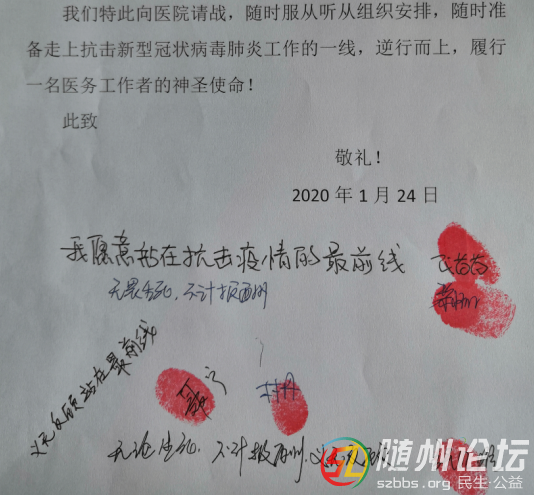 我们特此向医院请战，随时服从听从组织安排，随时准
备走上抗击新型冠状病毒肺炎工作的一线，逆行而上，履行
一名医务工作者的神圣使命！
此致
敬礼！
2020 年 1 月 24 日
我愿意站在抗击疫情的最前线
无畏生死、不计报酬
义无反顾站在最前线
无论生死、不计报酬、义无反顾
随州论坛
szbbs.org 民生·公益